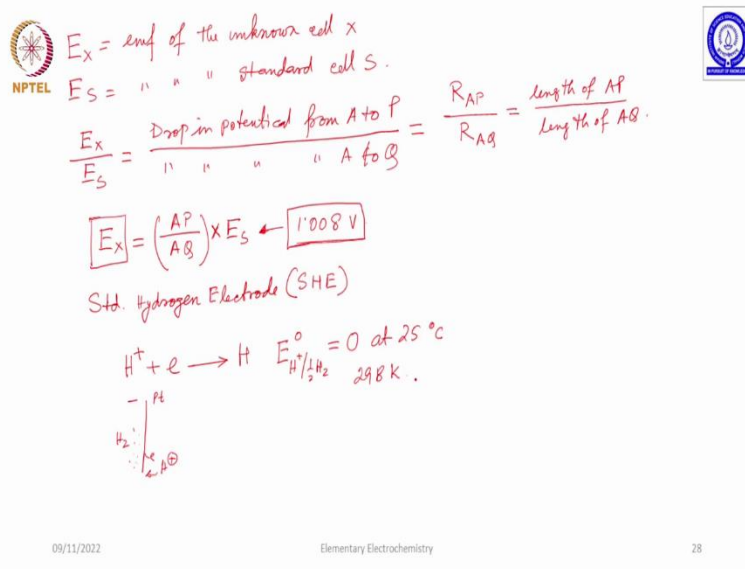 NPTEL
Eₓ = emf of the unknown cell x
E_S = " " " standard cell S.
Eₓ/E_S = Drop in potential from A to P / " " " " A to Q = R_AP/R_AQ = length of AP/length of AQ.
Eₓ = (AP/AQ) × E_S ← 1.008 V
Std. Hydrogen Electrode (SHE)
H⁺ + e ⟶ H E⁰_H⁺/½H₂ = 0 at 25 °C
298 K.
− Pt
H₂
e
09/11/2022 Elementary Electrochemistry 28